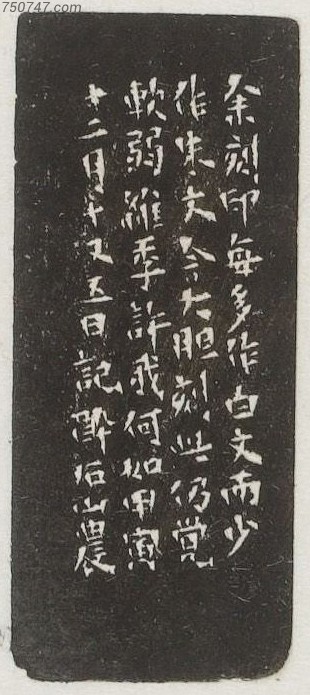 750747.com
余刻印每多作白文而少
作朱文今大胆刻此仍觉
軟弱維季許我何如甲寅
十二月十又五日記酔石山農